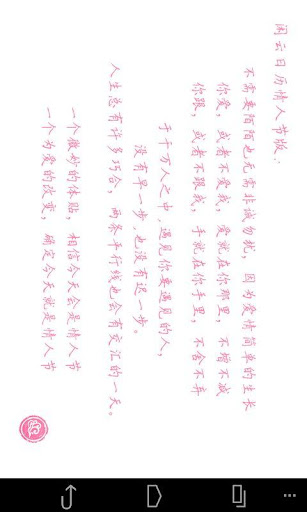 闲云日历情人节版:
不需要陌陌也无需非诚勿扰, 因为爱情简单的生长
你爱, 或者不爱我, 爱就在你那里, 不增不减
你跟, 或者不跟我, 手就在你手里, 不舍不弃
于千万人之中,遇见你要遇见的人,
没有早一步,也没有迟一步。
人生总有许多巧合, 两条平行线也会有交汇的一天。
一个微妙的体贴, 相信今天会是情人节
一个为爱的改变, 确定今天就是情人节